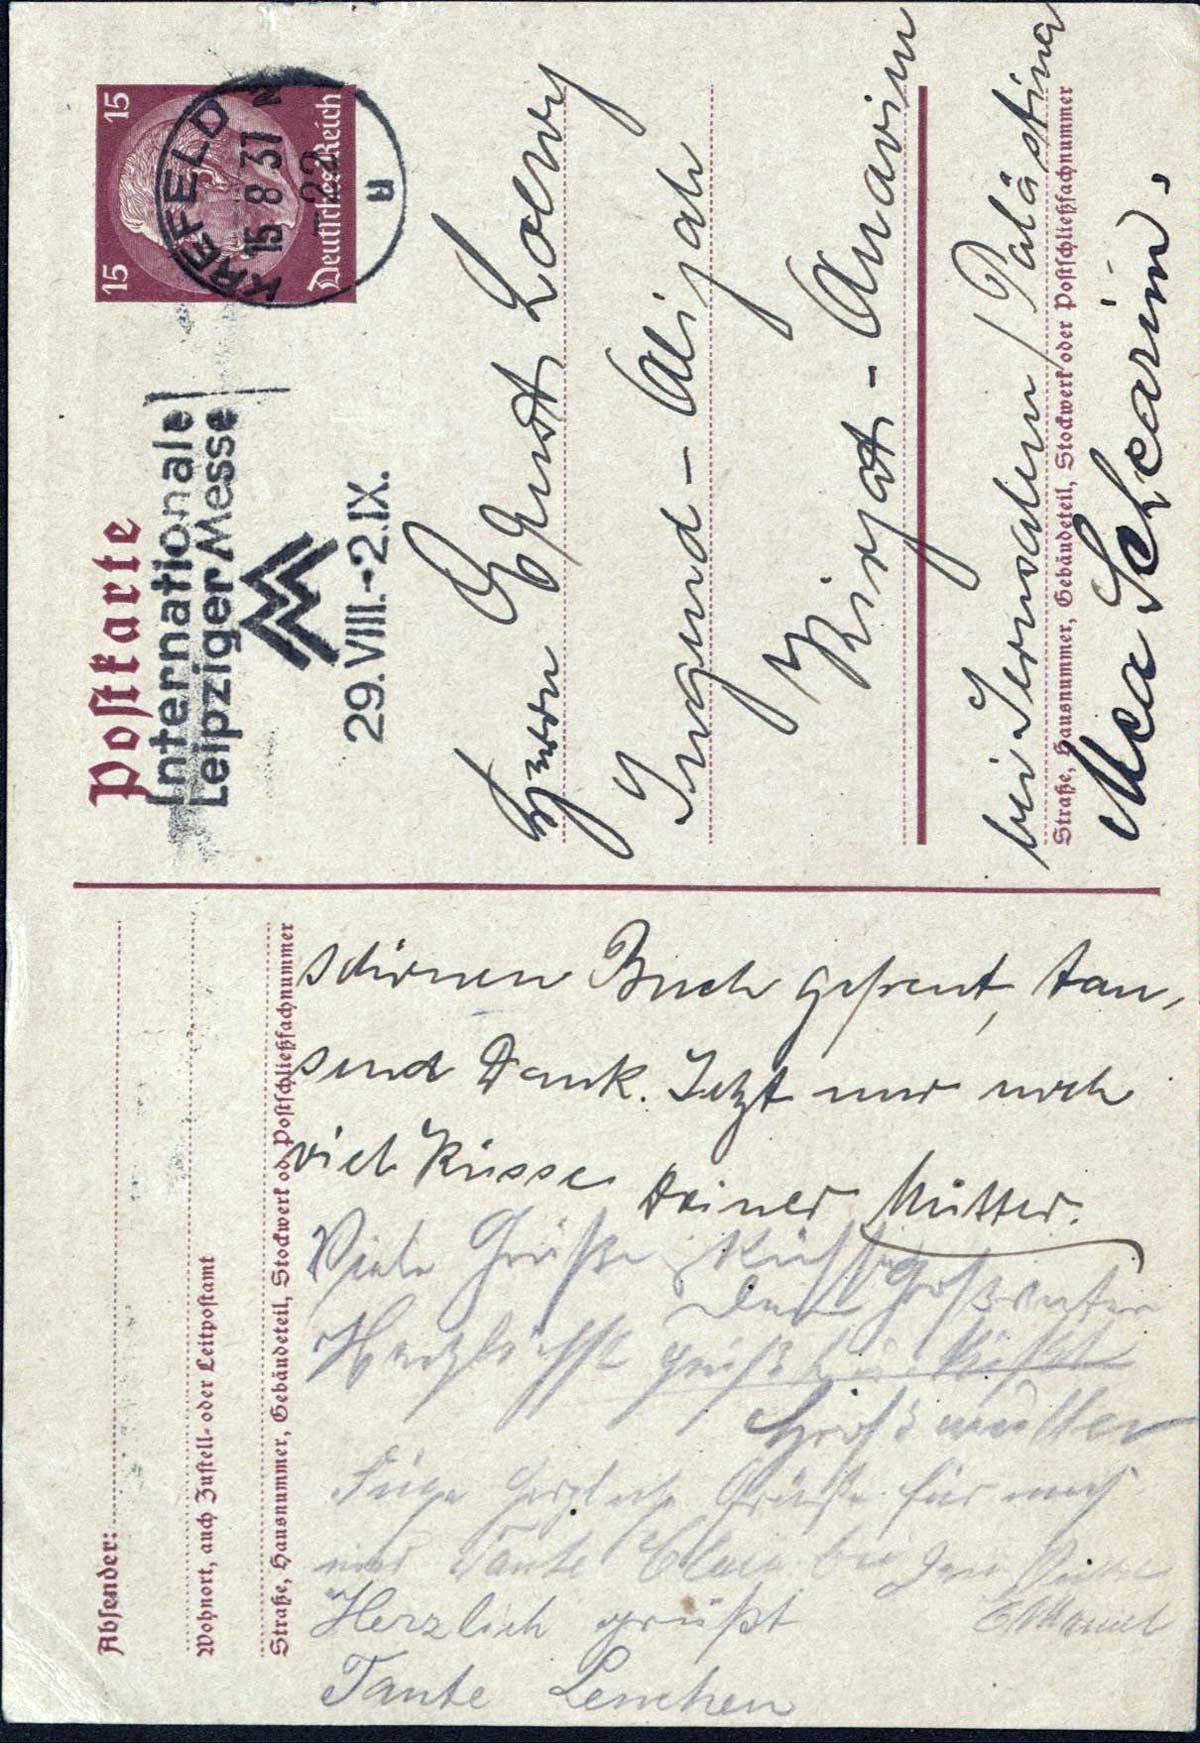 Postkarte
Internationale
Leipziger Messe
29.VIII.-2.IX.
15 15
Deutsches Reich
KREFELD
15 8 37
22
u
Herrn Loewy
Jugend-Alijah
Kirjat-Anavim
bei Jerusalem / Palästina
Straße, Hausnummer, Gebäudeteil, Stockwerk oder Postschließfachnummer
Mea Schearim.
Absender:
Wohnort, auch Zustell- oder Leitpostamt
Straße, Hausnummer, Gebäudeteil, Stockwerk od Postschließfachnummer
schönen Buch gefreut, tau-
send Dank. Jetzt nur noch
viel Küsse Deiner Mutter.
Viele Grüße Küsse
Dein Großvater
Herzlichst grüßt u. küßt
Großmutter
Füge herzliche Grüße für mich
und Tante bei
Herzlich grüßt
Tante Lenchen